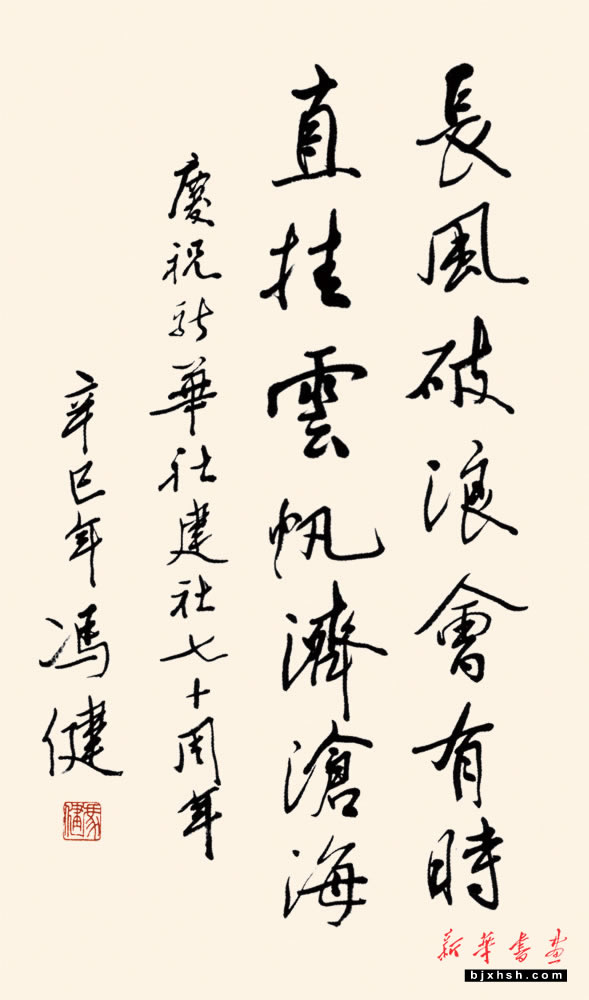 長風破浪會有時
直挂雲帆濟滄海
慶祝新華社建社七十周年
辛巳年
馮健
馮健
新華書畫
bjxhsh.com